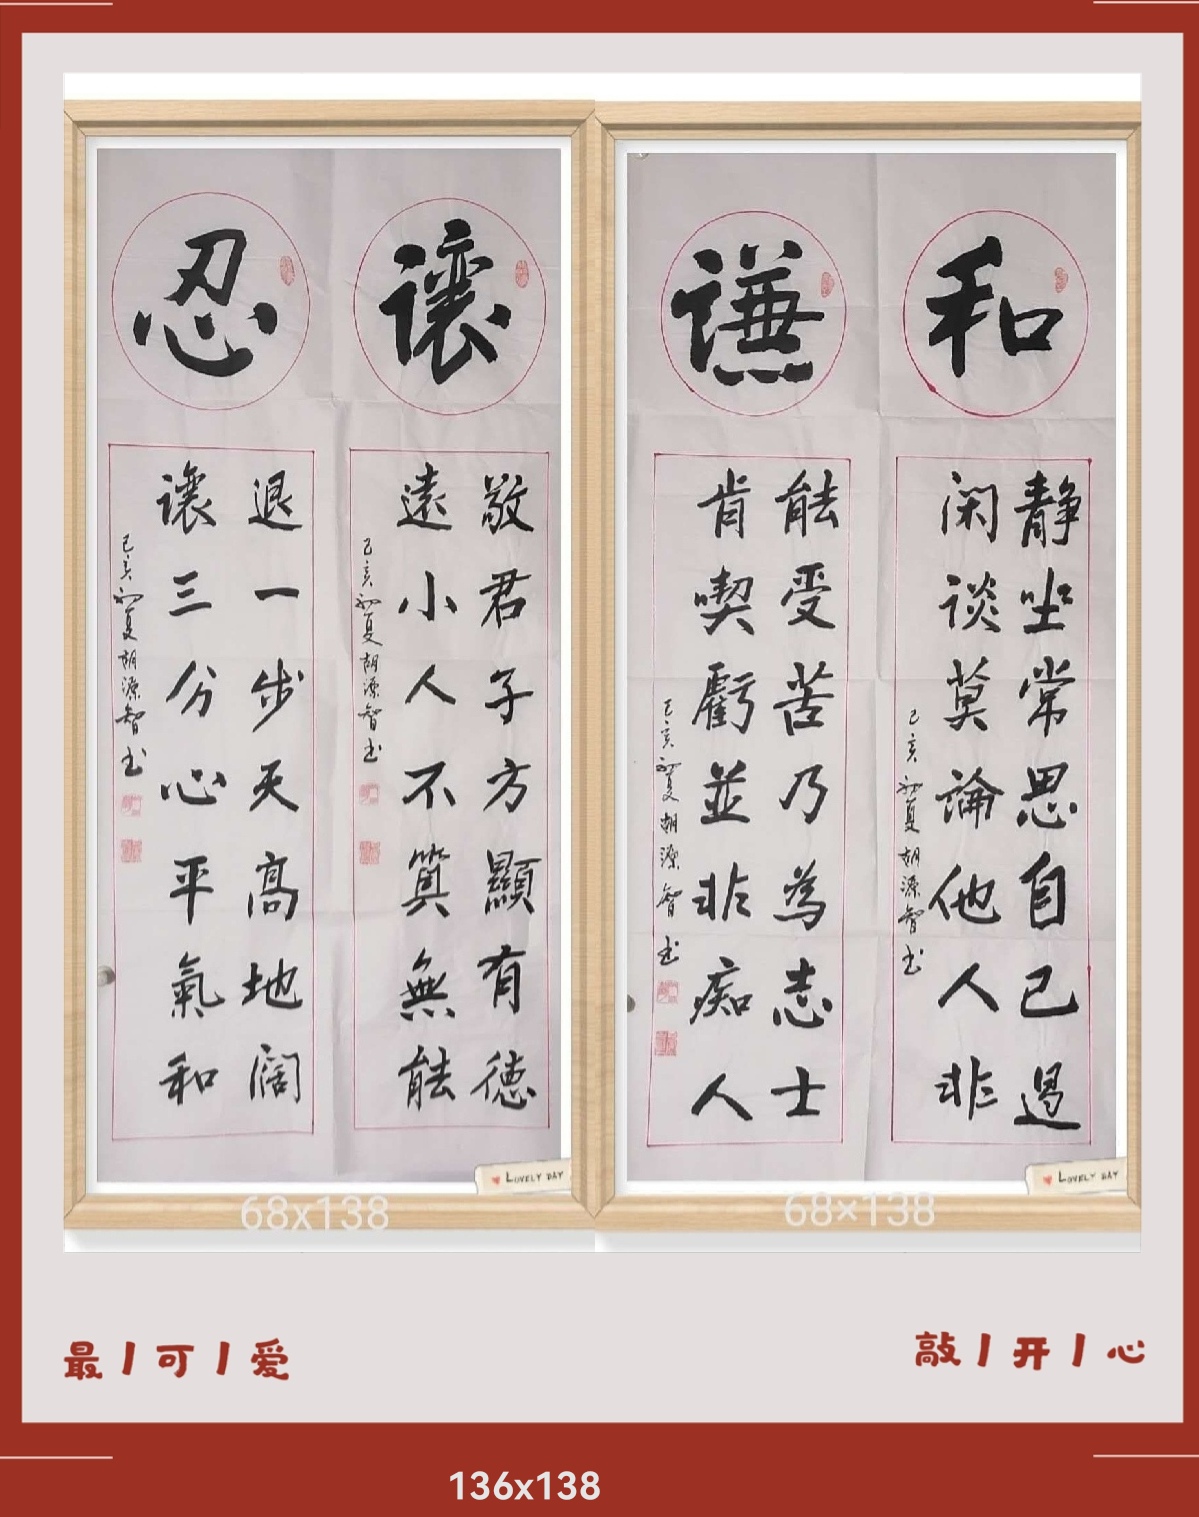 和
靜坐常思自己過
闲談莫論他人非
己亥初夏胡源智书
謙
能受苦乃為志士
肯喫虧並非痴人
己亥初夏胡源智书
讓
敬君子方顯有德
遠小人不算無能
己亥初夏胡源智书
忍
退一步天高地阔
讓三分心平氣和
己亥初夏胡源智书
LOVELY DAY
LOVELY DAY
68x138
68×138
最丨可丨爱
敲丨开丨心
136x138